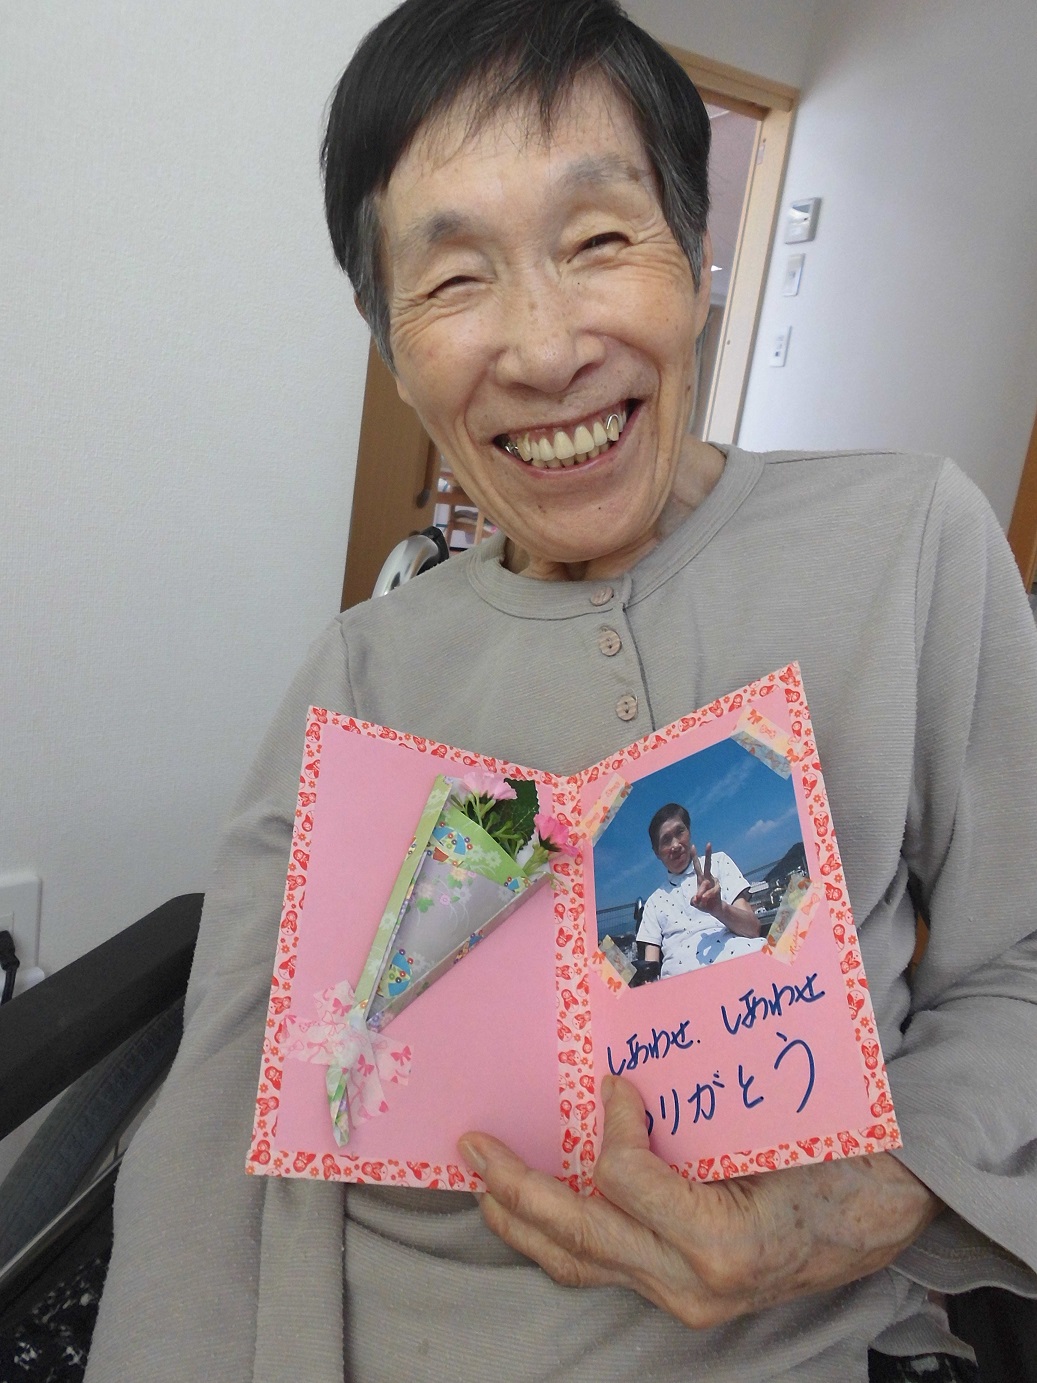 しあわせ、しあわせ
ありがとう